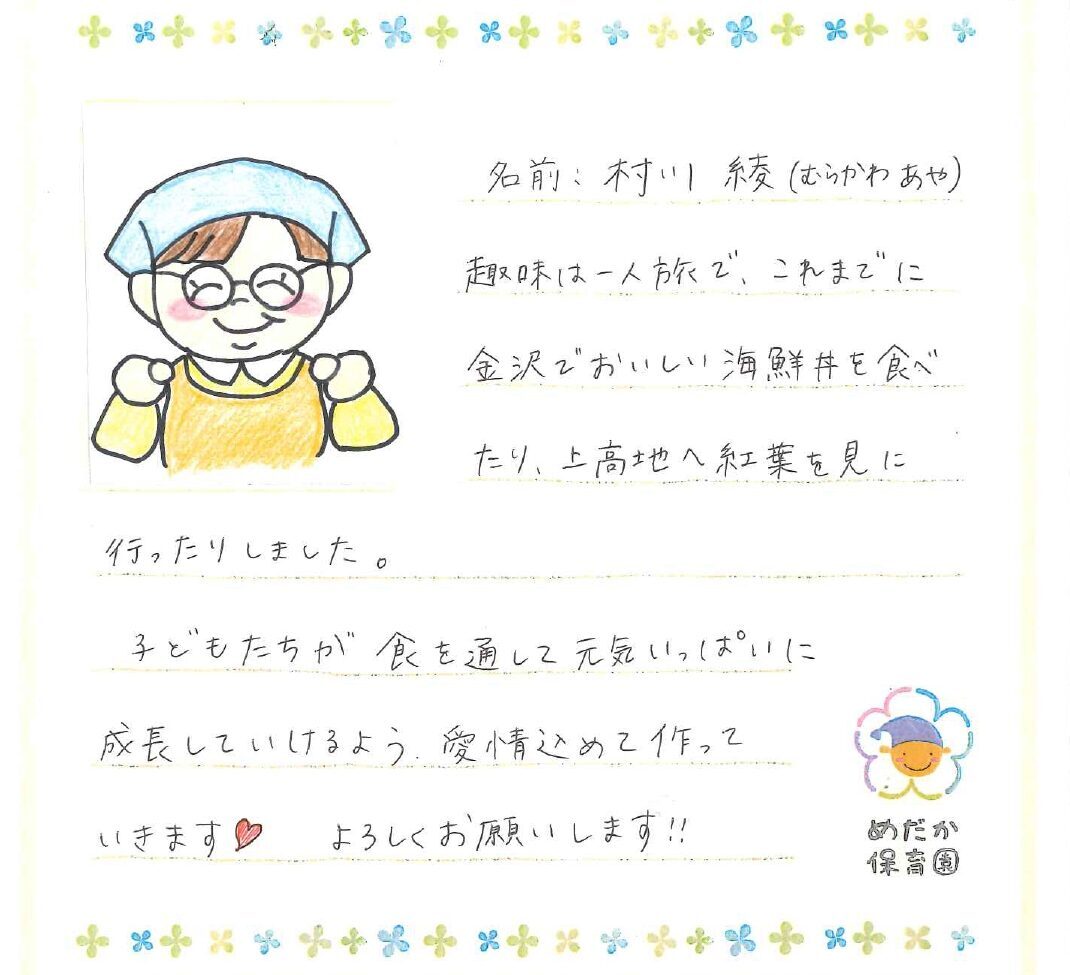 名前：村川 綾(むらかわあや)
趣味は一人旅で、これまでに
金沢でおいしい海鮮丼を食べ
たり、上高地へ紅葉を見に
行ったりしました。
子どもたちが食を通して元気いっぱいに
成長していけるよう、愛情込めて作って
いきます♥ よろしくお願いします!!
めだか
保育園